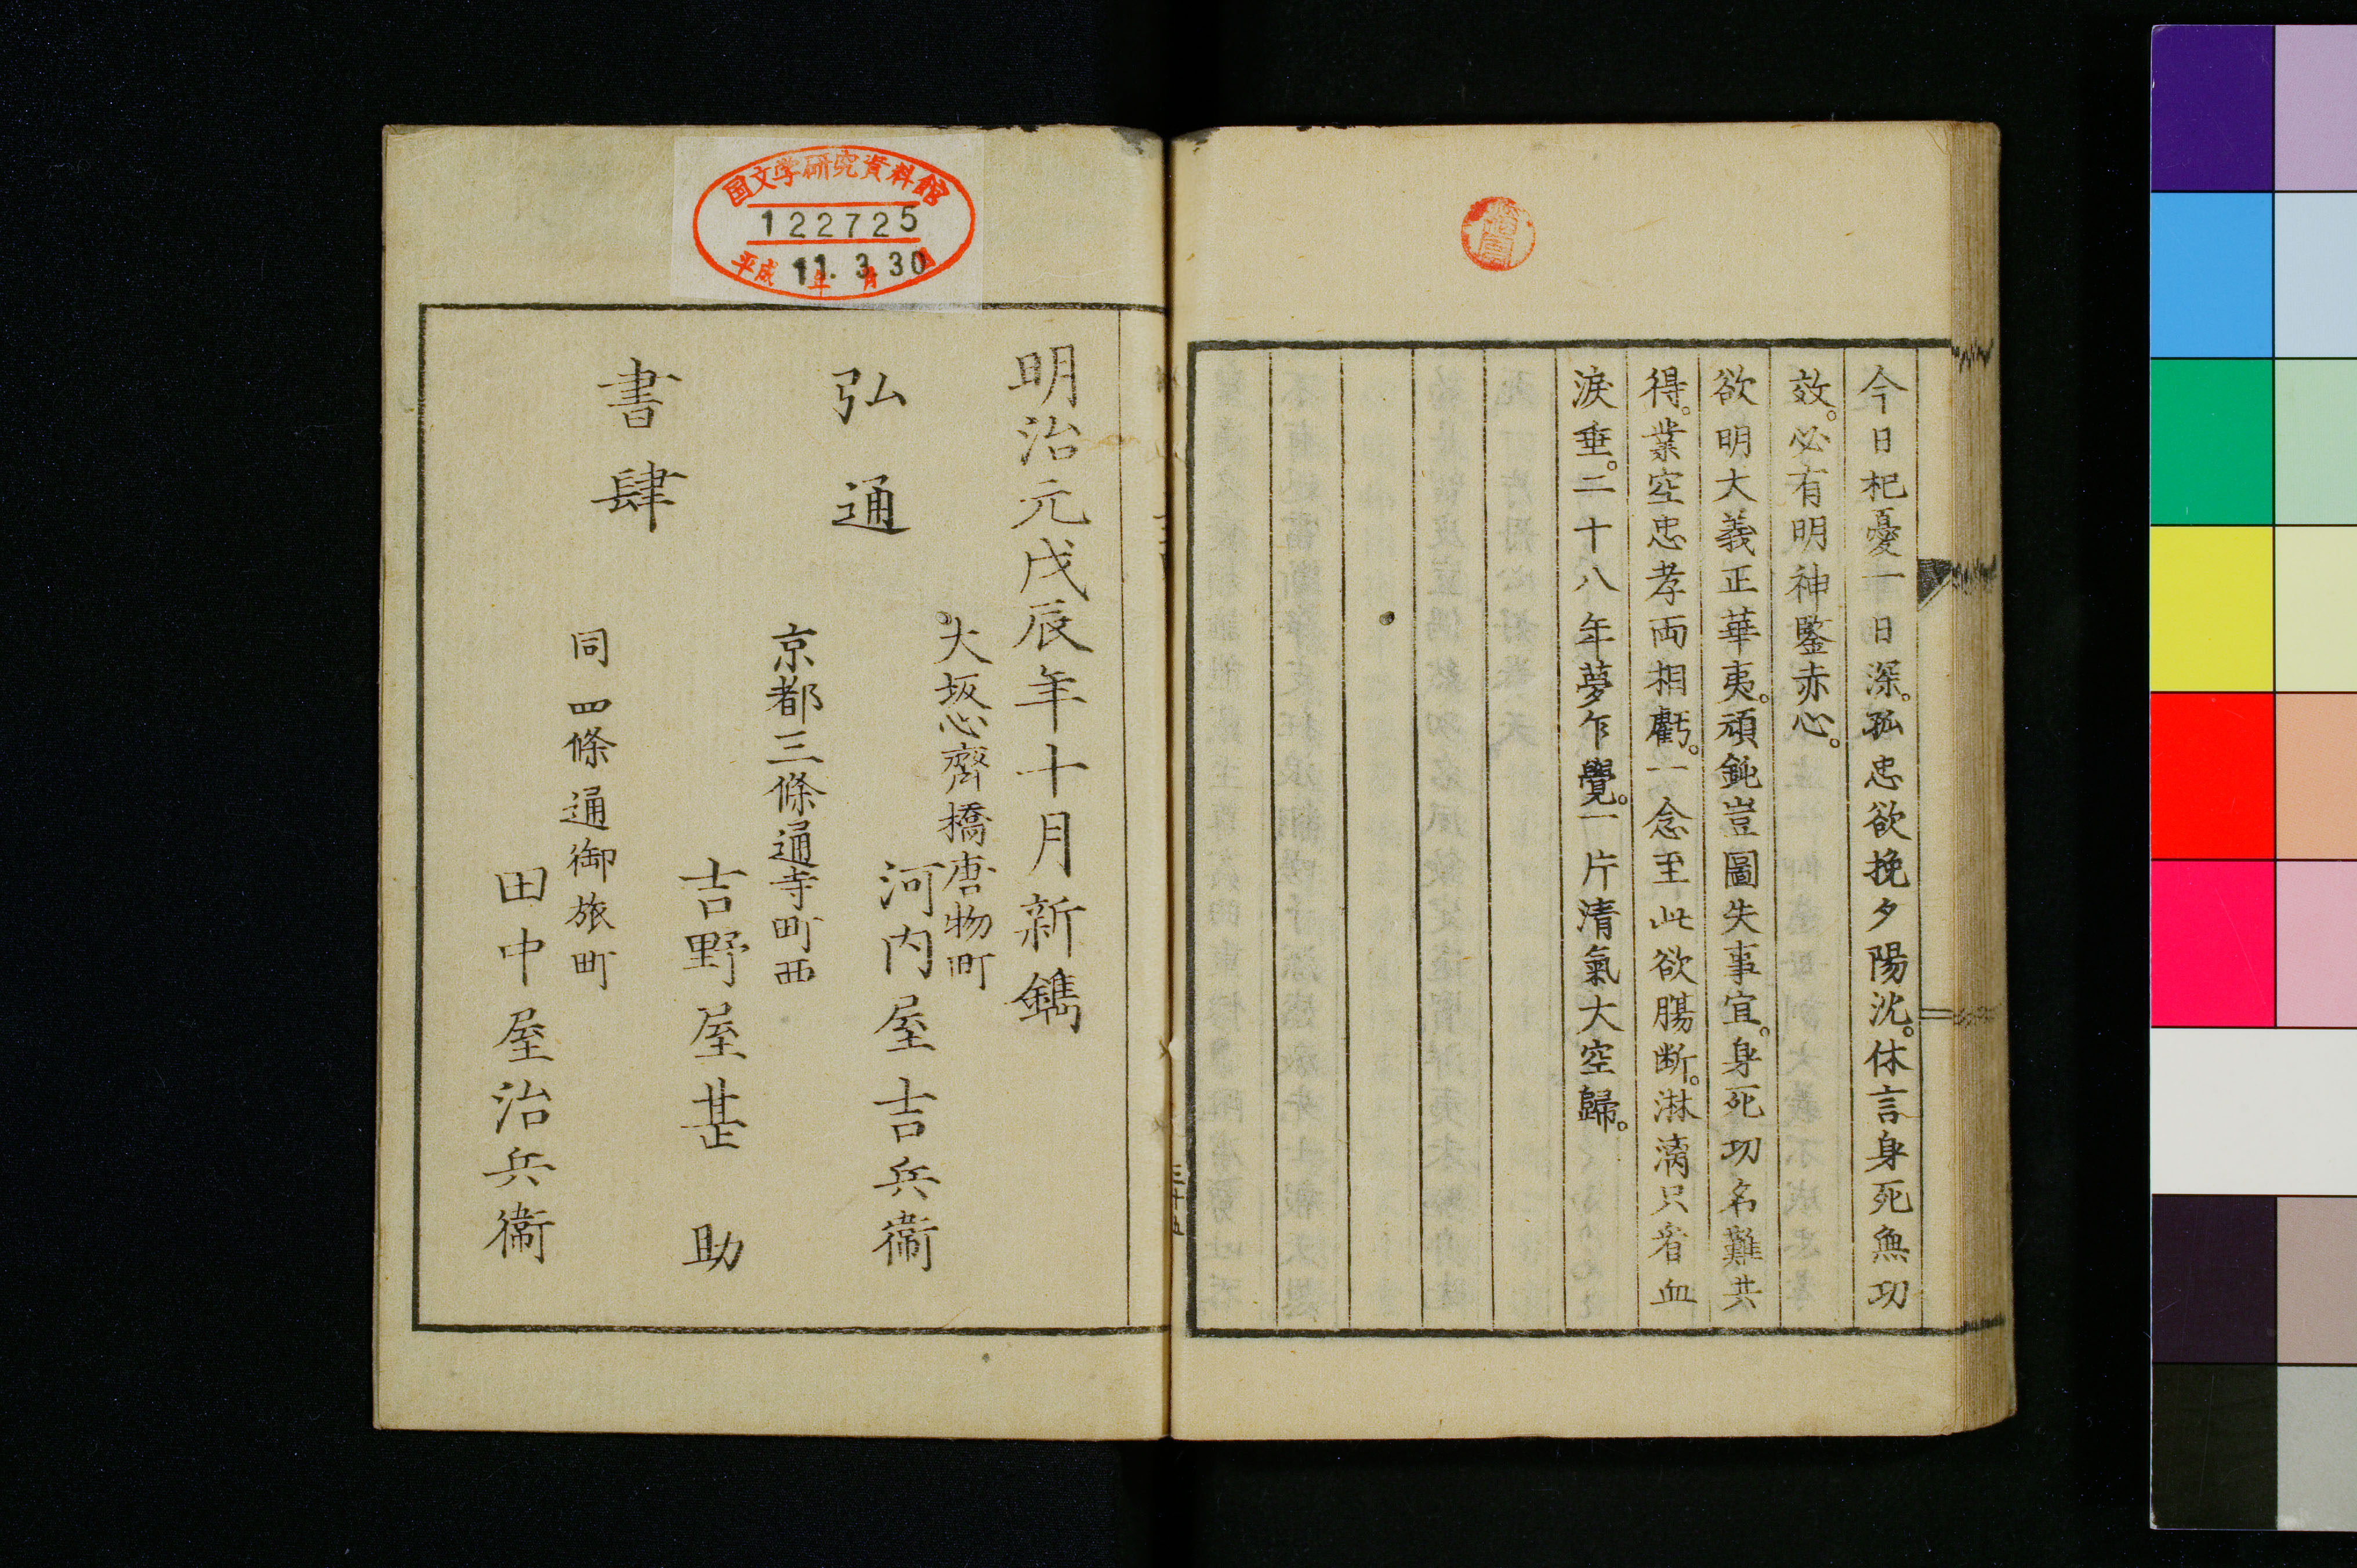 今日杞憂一日深。孤忠欲挽夕陽沈。休言身死無功
效。必有明神鑒赤心。
欲明大義正華夷。頑鈍豈圖失事宜。身死功名難共
得。業空忠孝両相虧。一念至此欲腸断。淋漓只看血
淚垂。二十八年夢乍覺。一片清氣大空歸。
三十五
国文学研究資料館
122725
平成11年3月30日
明治元戊辰年十月新鐫
弘通
書肆
大坂心齊橋唐物町
河内屋吉兵衞
京都三條通寺町西
吉野屋甚助
同四條通御旅町
田中屋治兵衞